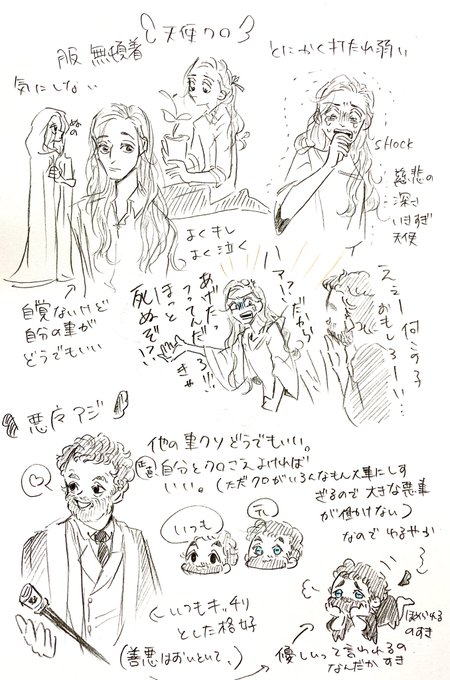 天使クロ
服 無頓着
気にしない
ぬの
とにかく打たれ弱い
SHOCK
慈悲の
深さ
いきすぎ
天使
よくキレ
よく泣く
自覚ないけど
自分の事が
どうでもいい
アァ?だから
あげたっ
つってんだろ!!!
ほっと
きゃ
死ぬぞ!?
えぇー何この子
おもしろーい…
悪魔アジ
他の事クソどうでもいい。
正直自分とクロさえよければ
いい。(ただクロがいろんなもん大事にしす
ぎるので大きな悪事
が働けない)
なのでゆるやか
いつも
テレ
いつもキッチリ
とした格好
(善悪はおいといて、)
優しいって言われるの
なんだかすき
ほめられる
のすき